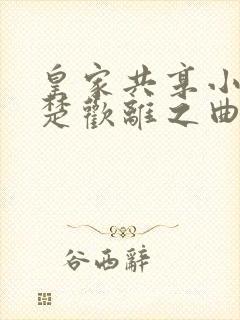 皇家共享小
楚歡離之曲
谷西辭